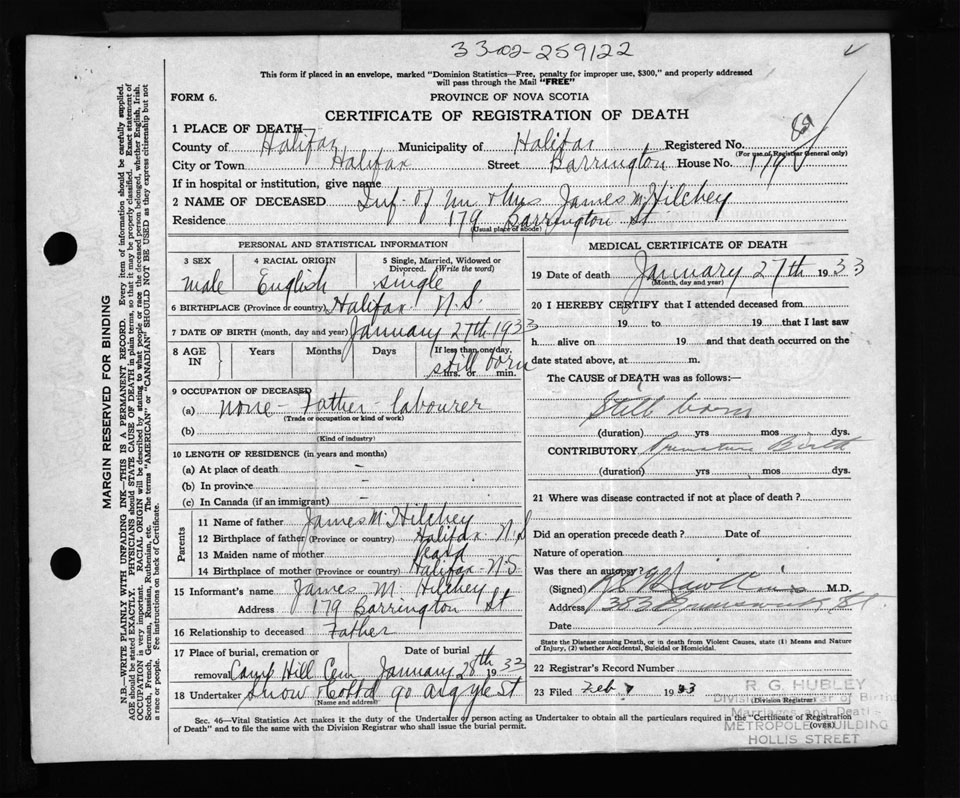 33-02-259122
This form if placed in an envelope, marked "Dominion Statistics—Free, penalty for improper use, $300," and properly addressed
will pass through the Mail "FREE"
FORM 6.
PROVINCE OF NOVA SCOTIA
CERTIFICATE OF REGISTRATION OF DEATH
1 PLACE OF DEATH
County of Halifax Municipality of Halifax Registered No.
(For use of Registrar General only)
City or Town Halifax Street Barrington House No. 179
If in hospital or institution, give name
2 NAME OF DECEASED Inf. of Mr & Mrs James McHilchey
Residence 179 Barrington St
(Usual place of abode)
PERSONAL AND STATISTICAL INFORMATION
3 SEX
male
4 RACIAL ORIGIN
English
5 Single, Married, Widowed or
Divorced. (Write the word)
single
6 BIRTHPLACE (Province or country) Halifax N.S.
7 DATE OF BIRTH (month, day and year) January 27th 1933
8 AGE
IN
Years
Months
Days
If less than one day,
still born
hrs. or min.
9 OCCUPATION OF DECEASED
(a) none Father labourer
(Trade or occupation or kind of work)
(b)
(Kind of industry)
10 LENGTH OF RESIDENCE (in years and months)
(a) At place of death -
(b) In province -
(c) In Canada (if an immigrant) -
Parents
11 Name of father James McHilchey
12 Birthplace of father (Province or country) Halifax N.S
13 Maiden name of mother
14 Birthplace of mother (Province or country) Halifax N.S
15 Informant's name James M. Hilchey
Address 179 Barrington St
16 Relationship to deceased Father
17 Place of burial, cremation or
removal Camp Hill Cem
Date of burial
January 28th 1933
18 Undertaker Snow & Co Ltd 90 Argyle St
(Name and address)
MEDICAL CERTIFICATE OF DEATH
19 Date of death January 27th 1933
(Month, day and year)
20 I HEREBY CERTIFY that I attended deceased from
19 to 19 that I last saw
h alive on 19 and that death occurred on the
date stated above, at m.
The CAUSE of DEATH was as follows:—
Still born
(duration) yrs mos dys.
CONTRIBUTORY Premature Birth
(duration) yrs mos dys.
21 Where was disease contracted if not at place of death?
Did an operation precede death? Date of
Nature of operation
Was there an autopsy?
(Signed) M.D.
Address 383 Brunswick St.
Date
State the Disease causing Death, or in death from Violent Causes, state (1) Means and Nature
of Injury, (2) whether Accidental, Suicidal or Homicidal.
22 Registrar's Record Number
23 Filed Feb 1933
(Division Registrar)
R. G. HUBLEY
Division Registrar of Births
Marriages and Deaths
METROPOLE BUILDING
HOLLIS STREET
Sec. 46—Vital Statistics Act makes it the duty of the Undertaker or person acting as Undertaker to obtain all the particulars required in the "Certificate of Registration
of Death" and to file the same with the Division Registrar who shall issue the burial permit.
(over)
MARGIN RESERVED FOR BINDING
N.B.—WRITE PLAINLY WITH UNFADING INK—THIS IS A PERMANENT RECORD. Every item of information should be carefully supplied.
AGE should be stated EXACTLY. PHYSICIANS should STATE CAUSE OF DEATH in plain terms, so that it may be properly classified. Exact statement of
OCCUPATION is very important. RACIAL ORIGIN will be described by stating to what people or race the deceased person belonged, whether English, Irish,
Scotch, French, German, Russian, Ruthenian, etc. The terms "AMERICAN" or "CANADIAN" SHOULD NOT BE USED as they express citizenship but not
a race or people. Fee instructions on back of Certificate.